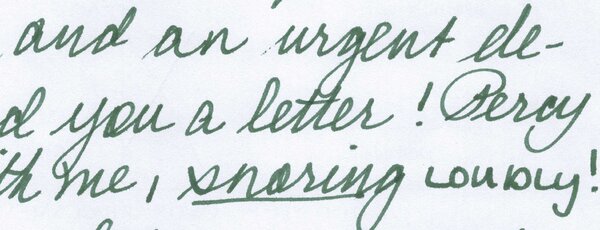 and an urgent de-
d you a letter! Percy
th me, snoring loudly!